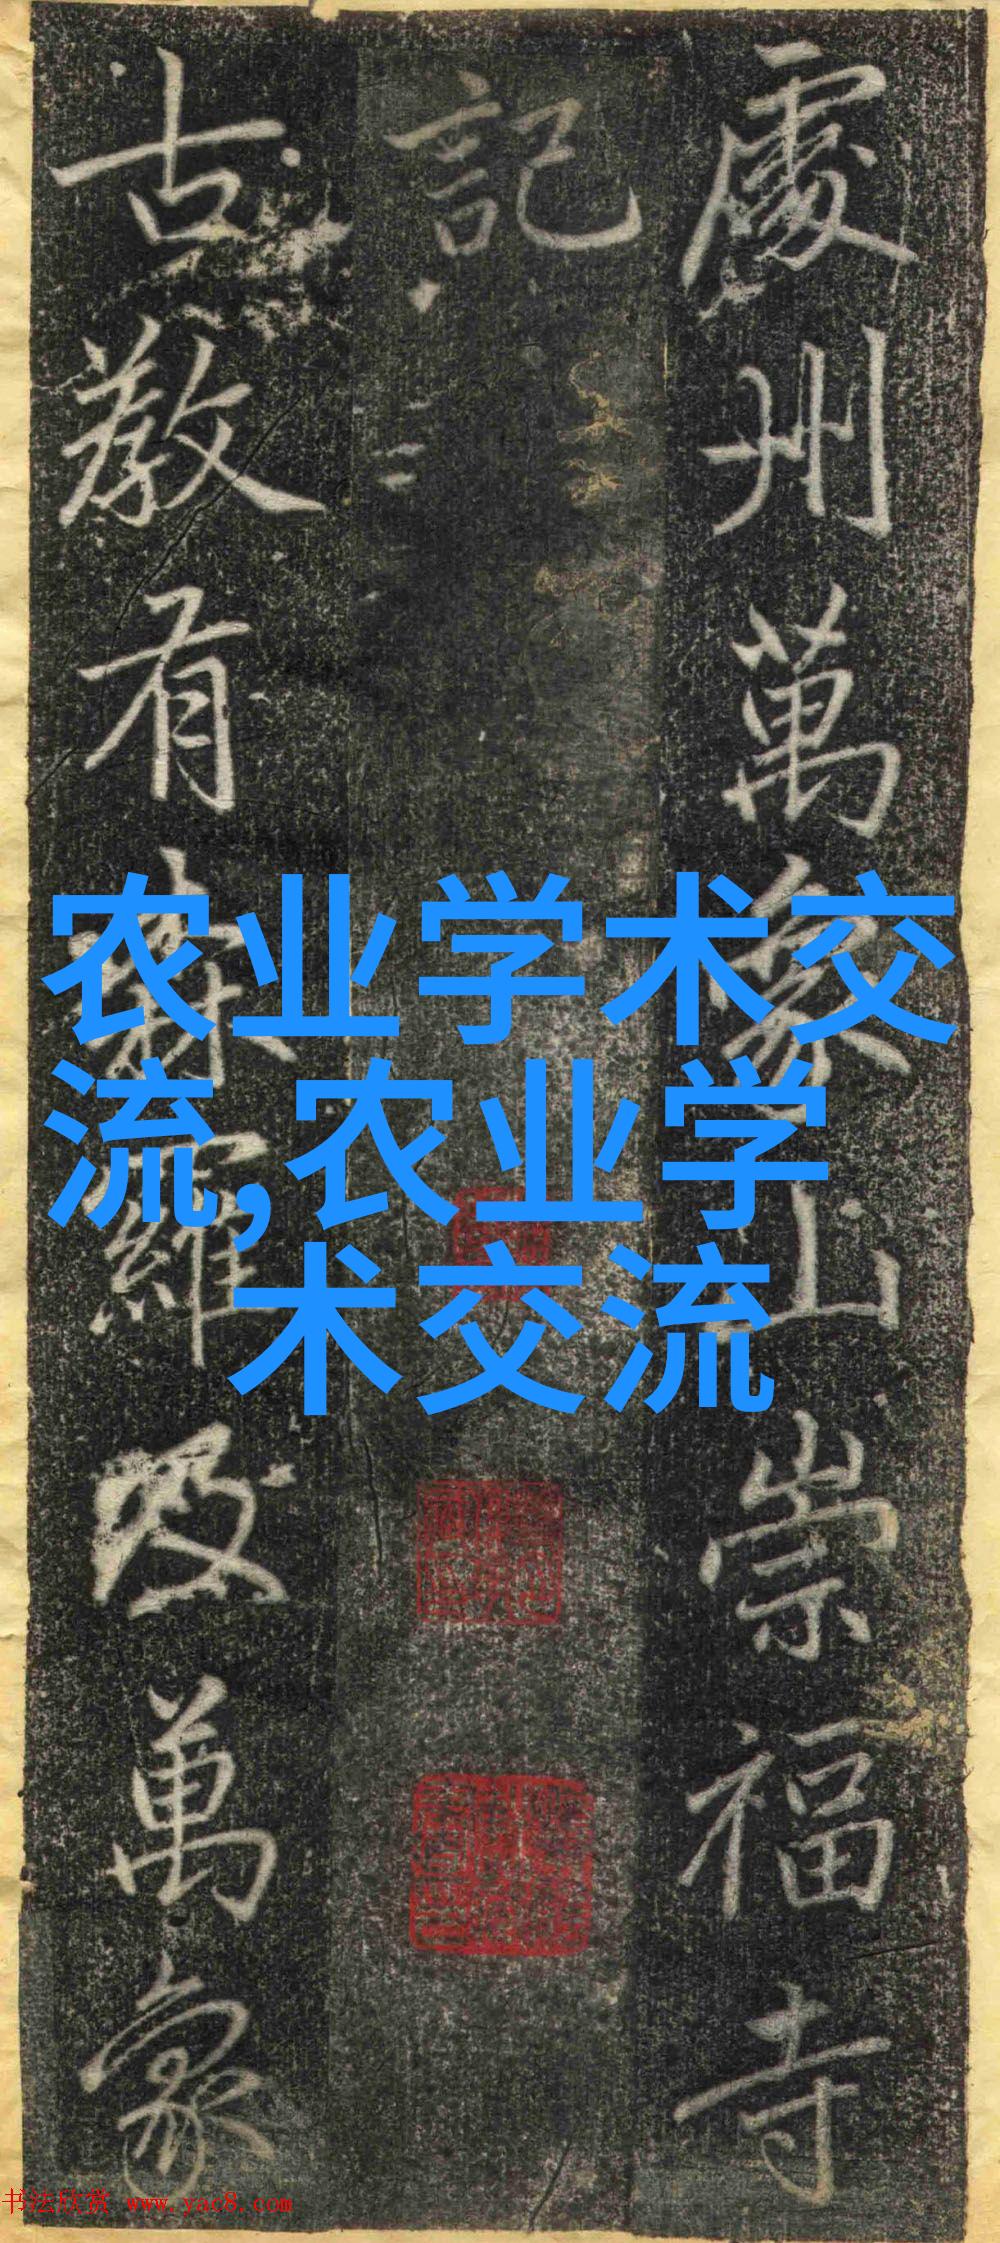 處州萬象山崇福寺
記
古教有森羅及萬象
农业学术交
流,农业学
术交流
书法欣赏 www.yac8.com